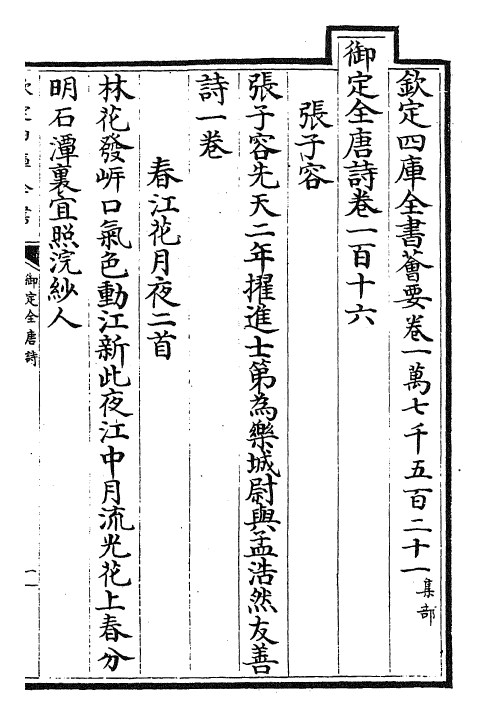 欽定四庫全書薈要卷一萬七千五百二十一集部
御定全唐詩卷一百十六
張子容
張子容先天二年擢進士第為樂城尉與孟浩然友善
詩一卷
春江花月夜二首
林花發岍口氣色動江新此夜江中月流光花上春分
明石潭裏宜照浣紗人
御定全唐詩
一